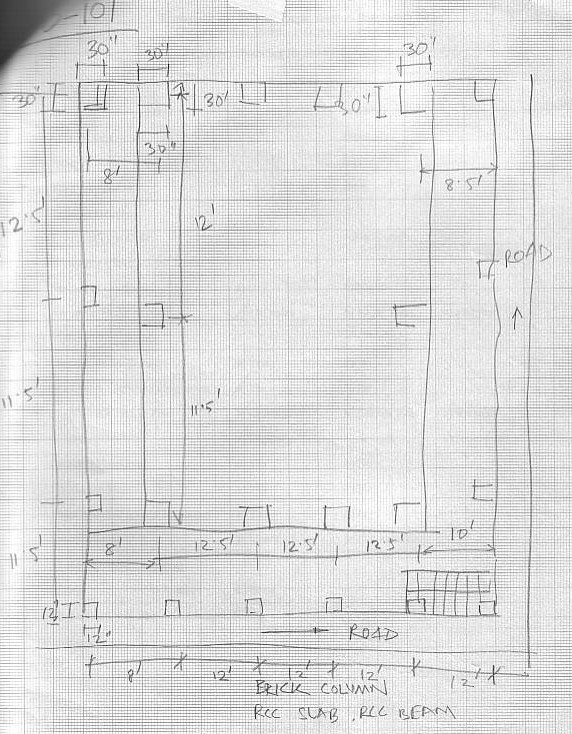 -101
30" 30" 30"
30" 30' 30"
30"
8' 8.5'
12.5' 12'
ROAD
11.5' 11.5'
8' 12.5' 12.5' 12.5' 10'
11.5'
12"
12"
ROAD
8' 12' 12' 12' 12'
BRICK COLUMN
RCC SLAB, RCC BEAM